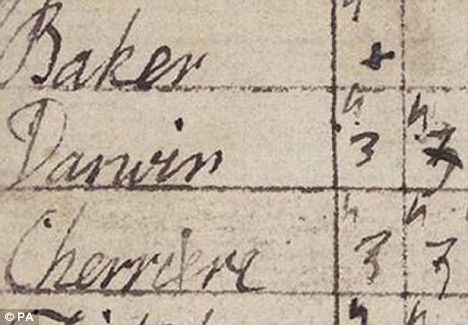 Baker +
Darwin 3 3
Cherriere 3 3
© PA